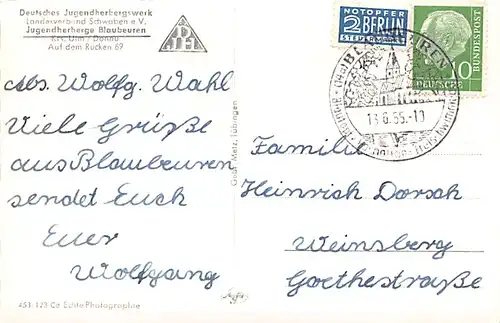 Deutsches Jugendherbergswerk
Landesverband Schwaben e.V.
Jugendherberge Blaubeuren
Krs. Ulm / Donau
Auf dem Rucken 69
Abs. Wolfg. Wahl
Viele Grüße
aus Blaubeuren
sendet Euch
Euer
Wolfgang
453/123 Ca Echte Photographie
Gebr. Metz, Tübingen
NOTOPFER
2 BERLIN
STEUERMARKE
BLAUBEUREN
13.6.55-10
Familie
Heinrich Dorsch
Weinsberg
Goethestraße